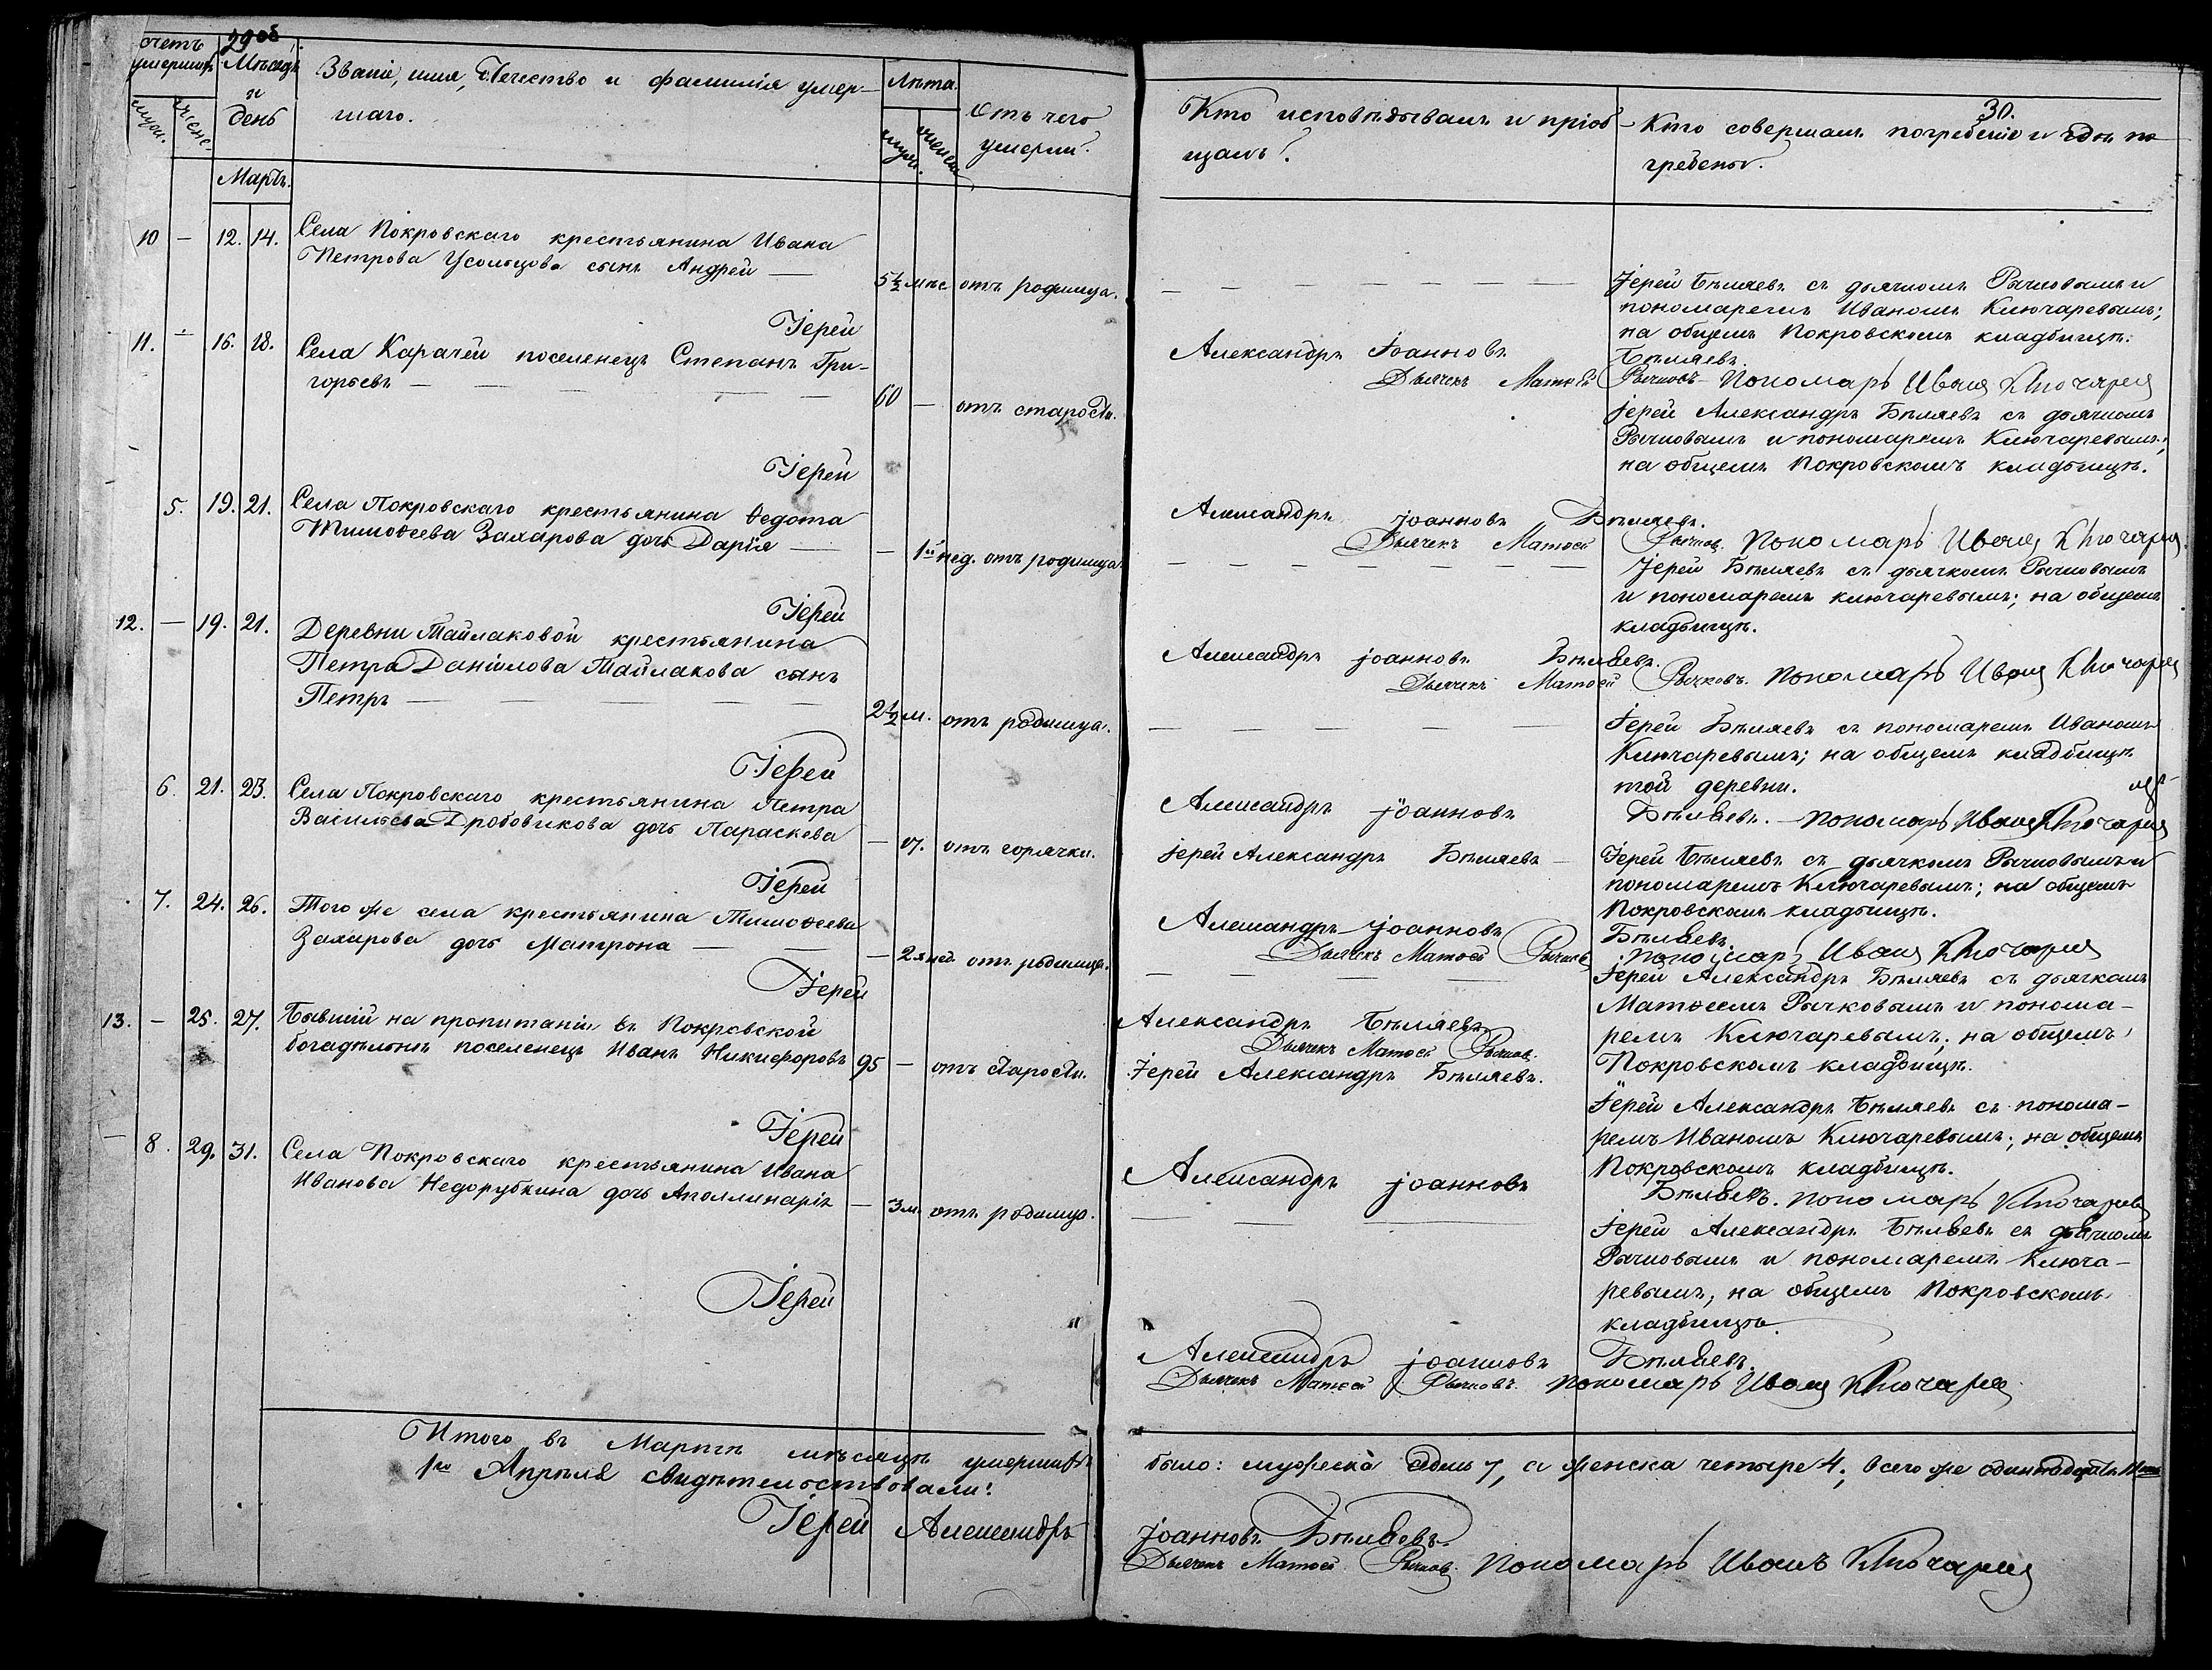 29 об
счетъ умершихъ
мужс. женс.
Мѣсяцъ
и
день
Званіе, имя, Отчество и фамилія умер-
шаго.
Лѣта.
мужс. женск.
Отъ чего
умерли?
Мартъ.
10 — 12. 14. Села Покровскаго крестьянина Ивана
Петрова Усольцова сынъ Андрей —
5½ мѣс отъ родимца.
Іерей
11. — 16. 18. Села Карачей поселенецъ Степанъ Гри-
горьевъ — — — —
60 — отъ старости.
Іерей
5. 19. 21. Села Покровскаго крестьянина Ѳедота
Тимоѳеева Захарова дочь Дарія —
— 1ой нед. отъ родимца.
Іерей
12. — 19. 21. Деревни Тайлаковой крестьянина
Петра Данілова Тайлакова сынъ
Петръ — — — —
2½ м. отъ родимца.
Іерей
6. 21. 23. Села Покровскаго крестьянина Петра
Васильева Дробовикова дочь Параскева
— 17. отъ горячки.
Іерей
7. 24. 26. Того же села крестьянина Тимоѳеева
Захарова дочь Матрона — —
— 2я нед. отъ родимца.
Іерей
13. — 25. 27. Бывшій на пропитаніи въ Покровской
богадѣльнѣ поселенецъ Иванъ Никифоровъ
95 — отъ старости.
Іерей
— 8. 29. 31. Села Покровскаго крестьянина Ивана
Иванова Недорубкина дочь Аполлинарія
— 3 м. отъ родимца.
Іерей
Итого въ Мартѣ мѣсяцѣ умершихъ
1го Апрѣля свидѣтельствовали:
Іерей Александръ
30.
Кто исповѣдывалъ и пріоб-
щалъ?
Кто совершалъ погребеніе и гдѣ по
гребены.
— — — — — — —
Іерей Бѣляевъ съ дьячкомъ Рычковымъ и
пономаремъ Иваномъ Ключаревымъ;
на общемъ Покровскомъ кладбищѣ.
Александръ Іоанновъ Бѣляевъ.
Дьячекъ Матѳей Рычковъ — Пономарь Иванъ Ключаревъ
Іерей Александръ Бѣляевъ съ дьячкомъ
Рычковымъ и пономаремъ Ключаревымъ;
на общемъ Покровскомъ кладбищѣ.
Александръ Іоанновъ Бѣляевъ.
Дьячекъ Матѳей Рычковъ. Пономарь Иванъ Ключаревъ
— — — — — — —
Іерей Бѣляевъ съ дьячкомъ Рычковымъ
и пономаремъ Ключаревымъ; на общемъ
кладбищѣ.
Александръ Іоанновъ Бѣляевъ.
Дьячекъ Матѳей Рычковъ. Пономарь Иванъ Ключаревъ
— — — — —
Іерей Бѣляевъ съ пономаремъ Иваномъ
Ключаревымъ; на общемъ кладбищѣ
той деревни.
Александръ Іоанновъ Бѣляевъ. — Пономарь Иванъ Ключаревъ
Іерей Александръ Бѣляевъ —
Іерей Бѣляевъ съ дьячкомъ Рычковымъ и
пономаремъ Ключаревымъ; на общемъ
Покровскомъ кладбищѣ.
Александръ Іоанновъ Бѣляевъ.
Дьячекъ Матѳей Рычковъ Пономарь Иванъ Ключаревъ
— — — —
Іерей Александръ Бѣляевъ съ дьячкомъ
Матѳеемъ Рычковымъ и понома-
ремъ Ключаревымъ; на общемъ
Покровскомъ кладбищѣ.
Александръ Бѣляевъ
Дьячекъ Матѳей Рычковъ.
Іерей Александръ Бѣляевъ.
Іерей Александръ Бѣляевъ съ понома-
ремъ Иваномъ Ключаревымъ; на общемъ
Покровскомъ кладбищѣ.
Александръ Іоанновъ Бѣляевъ. Пономарь Ключаревъ
— — —
Іерей Александръ Бѣляевъ съ дьячкомъ
Рычковымъ и пономаремъ Ключа-
ревымъ; на общемъ Покровскомъ
кладбищѣ.
Александръ Іоанновъ Бѣляевъ.
Дьячекъ Матѳей Рычковъ. Пономарь Иванъ Ключаревъ
было: мужеска седмь 7, а женска четыре 4; всего же одиннадцать
Іоанновъ Бѣляевъ
Дьячекъ Матѳей Рычковъ. Пономарь Иванъ Ключаревъ